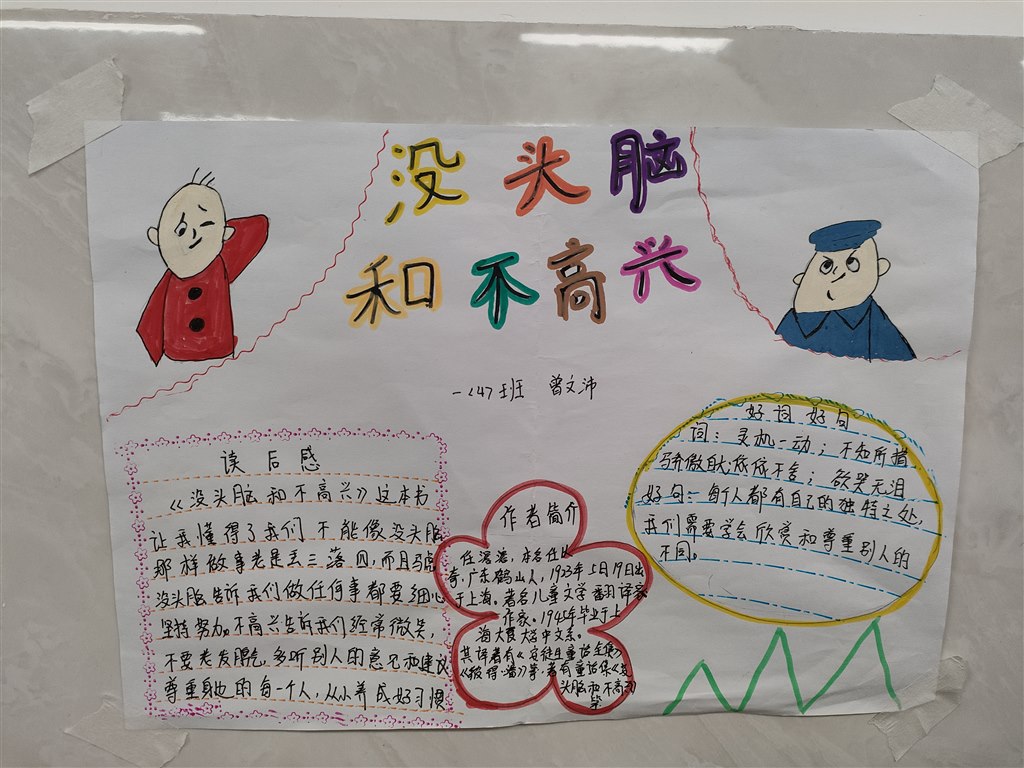 没头脑
和不高兴
一〈4〉班 曾文沛
读后感
《没头脑和不高兴》这本书
让我懂得了我们不能像没头脑
那样做事老是丢三落四,而且
没头脑告诉我们做任何事都要细心
坚持努力。不高兴告诉我们经常微笑,
不要老发脾气,多听别人的意见和建议
尊重身边的每一个人,从小养成好习惯
作者简介
任溶溶,本名任以
奇,广东鹤山人,1923年5月19日出
于上海。著名儿童文学翻译家
作家。1945年毕业于上
海大夏大学中文系。
其译著有《安徒生童话全集》
《彼得·潘》等;著有童话集《没
头脑和不高兴》
等
好词好句
词:灵机一动;不知所措
骄傲自大;依依不舍;欲哭无泪
好句:每个人都有自己的独特之处,
我们需要学会欣赏和尊重别人的
不同。